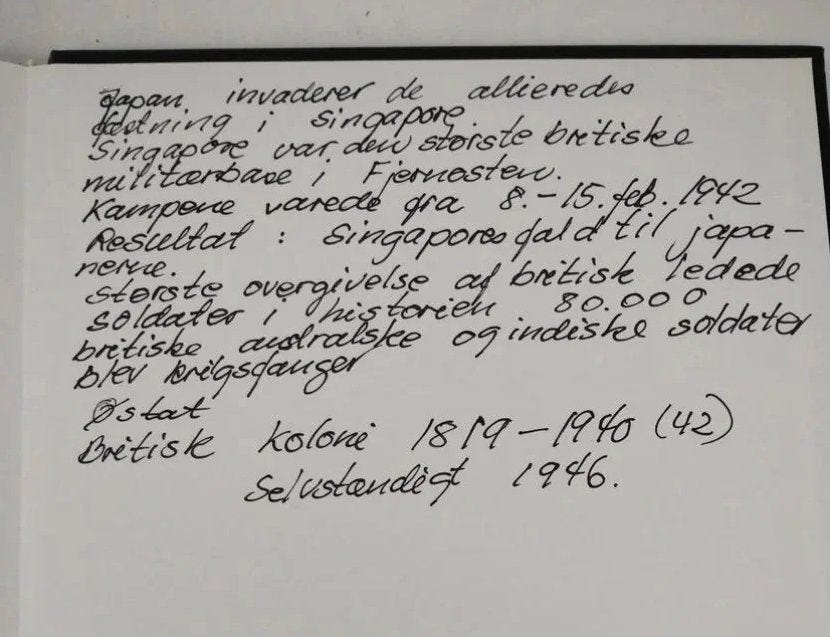 Japan invaderer de allieredes
fæstning i Singapore.
Singapore var den største britiske
militærbase i Fjernøsten.
Kampene varede fra 8.-15. feb. 1942
Resultat : Singapores fald til japa-
nerne.
største overgivelse af britisk ledede
soldater i historien 80.000
britiske australske og indiske soldater
blev krigsfanger
Østat
Britisk koloni 1819-1940 (42)
Selvstændigt 1946.